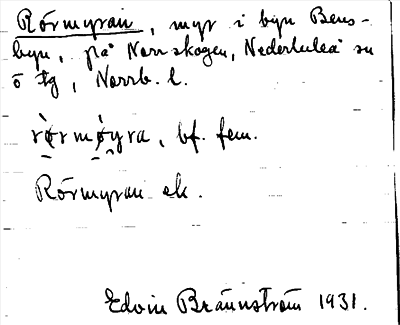 Rörmyran, myr i byn Bens-
byn, på Norrskogen, Nederluleå sn
o tg, Norrb. l.
rø̀rmøyra, bf. fem.
Rörmyran ek.
Edvin Brännström 1931.